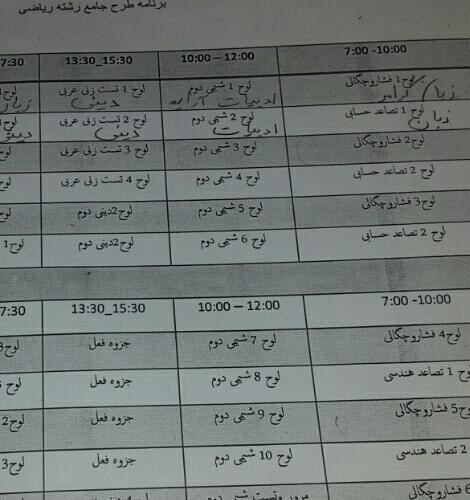 برنامه طرح جامع رشته ریاضی
7:00 -10:00 10:00 – 12:00 13:30_15:30 7:30
لوح 1 فشاروچگالی لوح 1 شیمی دوم لوح 1 تست زنی عربی لوح1
زبان ادبیات دینی زبان
لوح 1 تصاعد حسابی لوح 2 شیمی دوم لوح 2 تست زنی عربی
زبان ادبیات دینی دینی
لوح2 فشاروچگالی لوح 3 شیمی دوم لوح 3 تست زنی عربی لوح
لوح 2 تصاعد حسابی لوح 4 شیمی دوم لوح 4 تست زنی عربی لوح
لوح3 فشاروچگالی لوح 5 شیمی دوم لوح2دینی دوم لوح
لوح 2 تصاعد حسابی لوح 6 شیمی دوم لوح2دینی دوم لوح 1
7:00 -10:00 10:00 – 12:00 13:30_15:30 7:30
لوح4 فشاروچگالی لوح 7 شیمی دوم جزوه فعل لوح3
لوح 1 تصاعد هندسی لوح 8 شیمی دوم جزوه فعل لوح
لوح5 فشاروچگالی لوح 9 شیمی دوم جزوه فعل لوح2
لوح 2 تصاعد هندسی لوح 10 شیمی دوم جزوه فعل لوح3
6 فشاروچگالی مرور وتست شیمی دوم